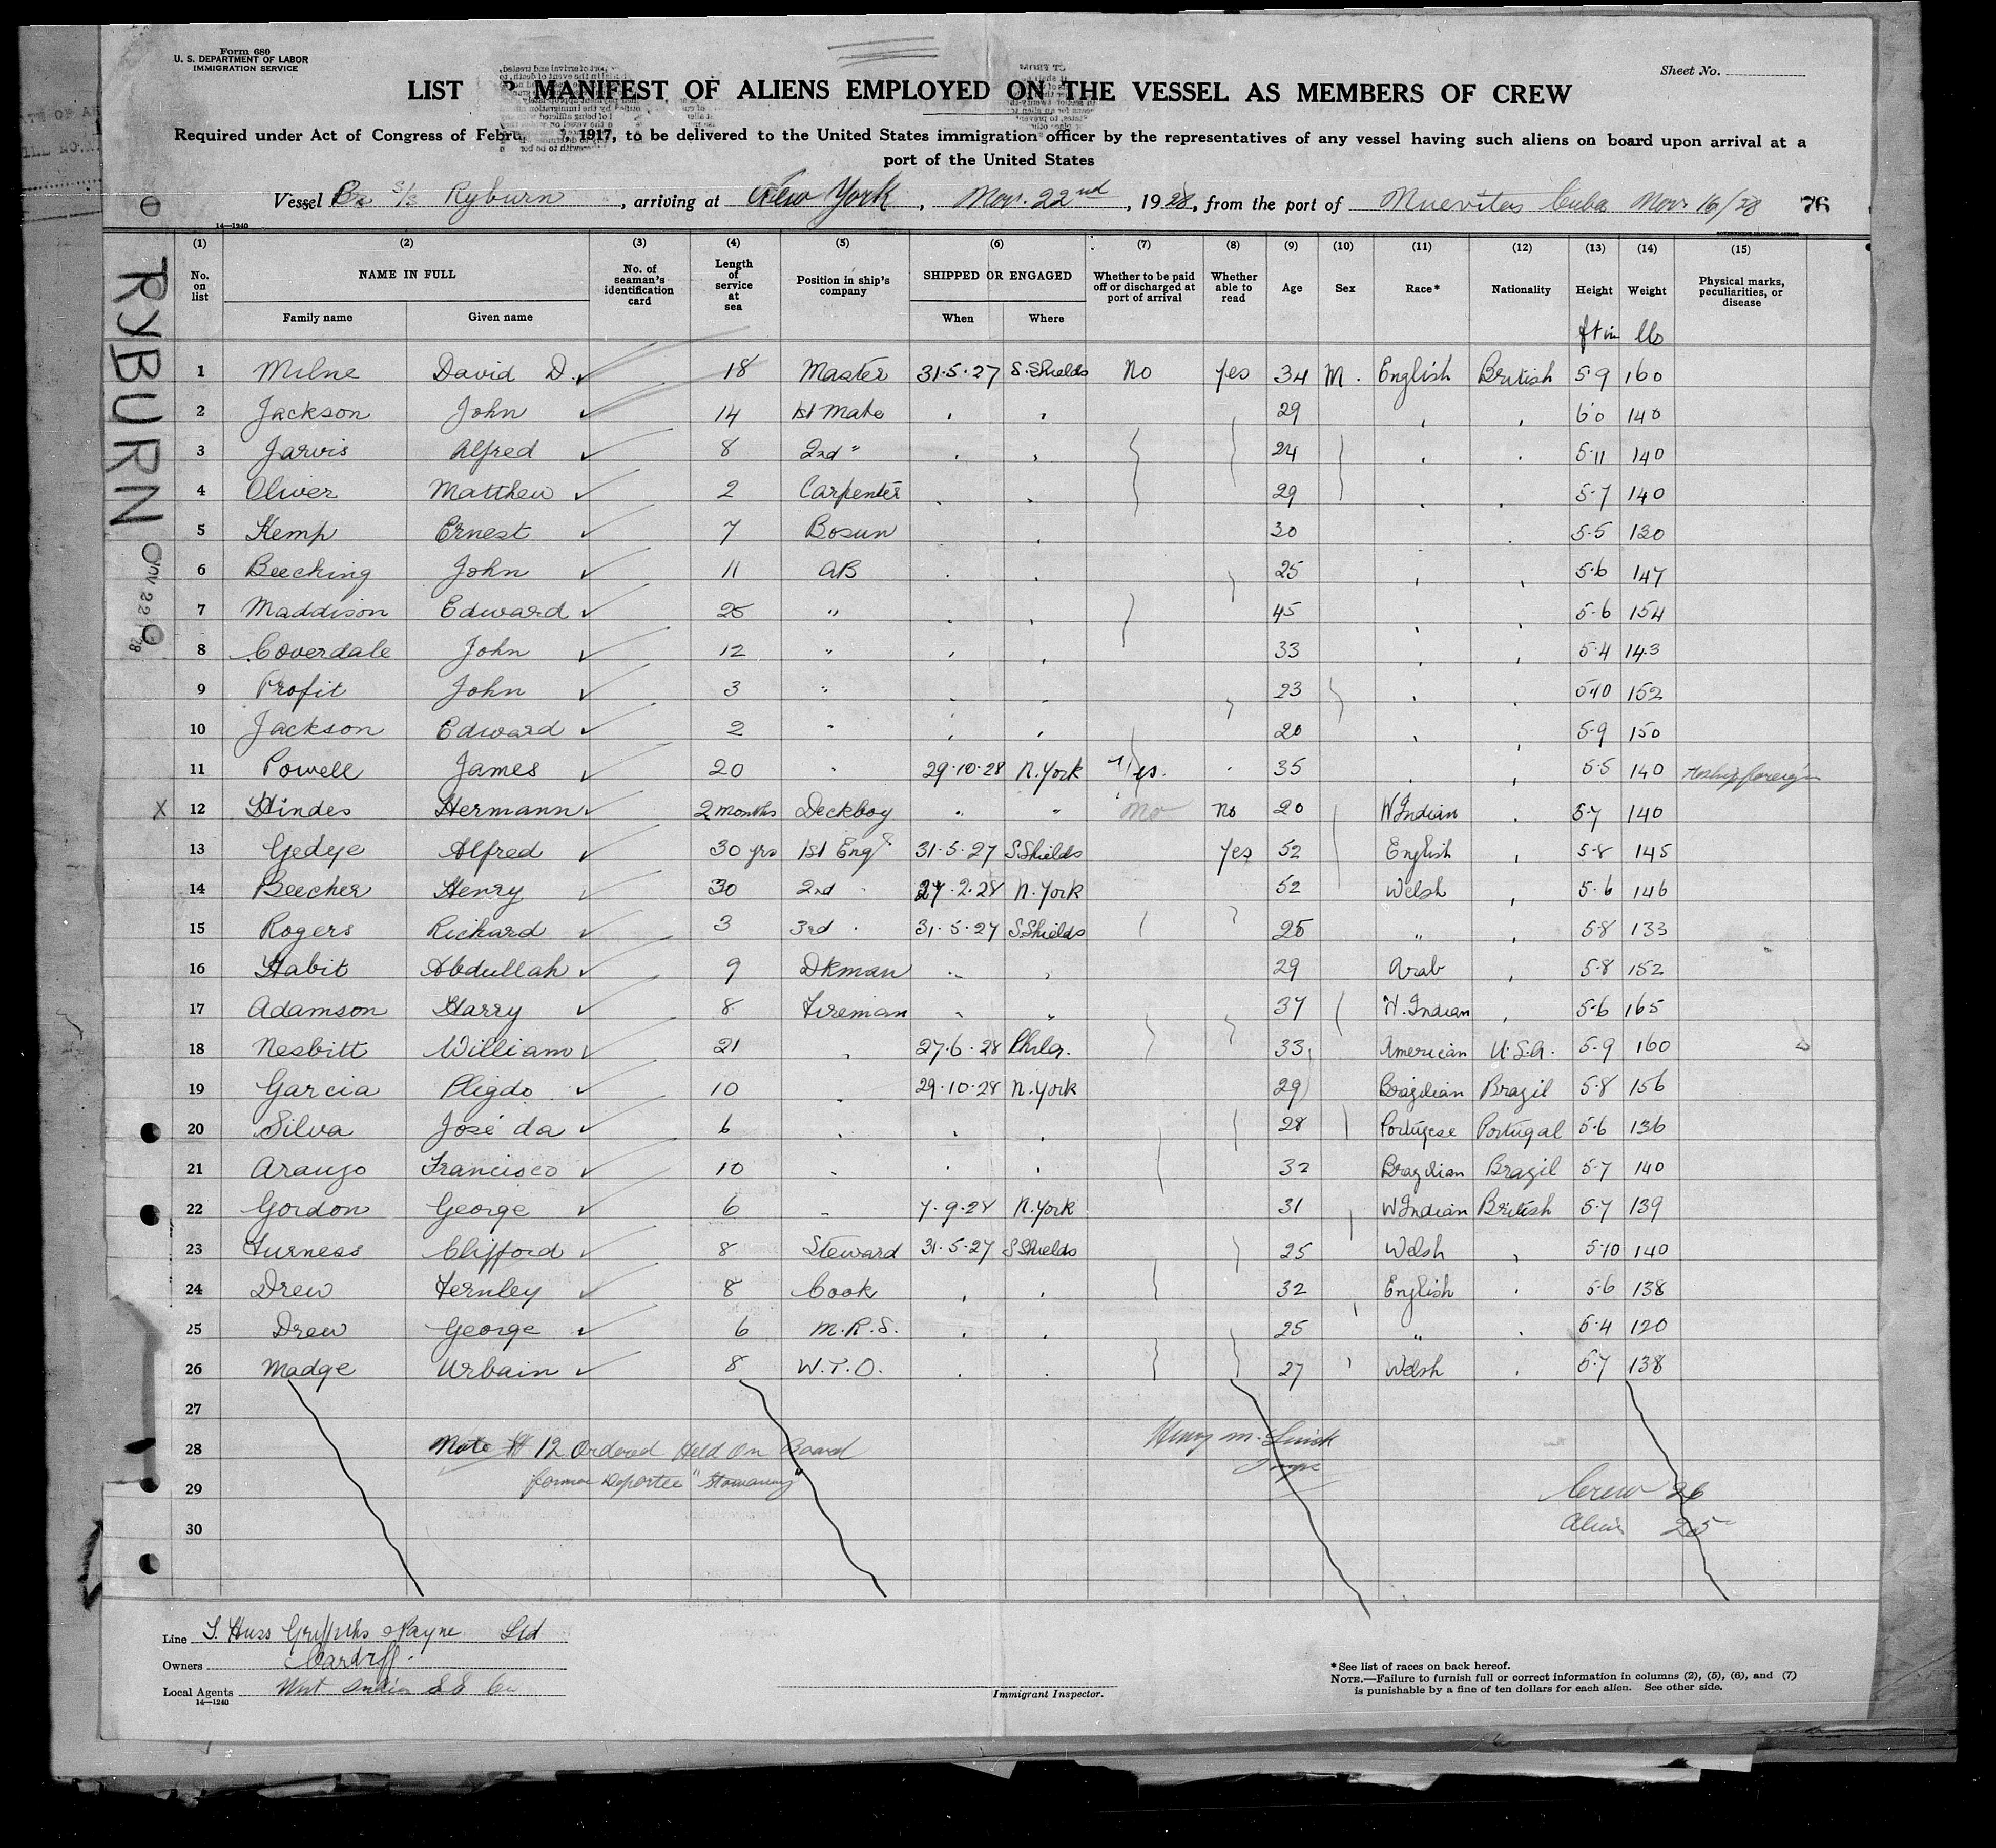 Form 680
U. S. DEPARTMENT OF LABOR
IMMIGRATION SERVICE
Sheet No.
LIST MANIFEST OF ALIENS EMPLOYED ON THE VESSEL AS MEMBERS OF CREW
Required under Act of Congress of Febru 1917, to be delivered to the United States immigration officer by the representatives of any vessel having such aliens on board upon arrival at a
port of the United States
Vessel Br S/S Ryburn, arriving at New York, Nov. 22nd, 1928, from the port of Nuevitas Cuba Nov 16/28 76
14—1240
RYBURN
NOV 22 1928
(1) (2) (3) (4) (5) (6) (7) (8) (9) (10) (11) (12) (13) (14) (15)
No. on list NAME IN FULL No. of seaman's identification card Length of service at sea Position in ship's company SHIPPED OR ENGAGED Whether to be paid off or discharged at port of arrival Whether able to read Age Sex Race* Nationality Height Weight Physical marks, peculiarities, or disease
Family name Given name When Where ft in lb
1 Milne David D. 18 Master 31·5·27 S.Shields No yes 34 M. English British 5·9 160
2 Jackson John 14 1st Mate 29 6·0 140
3 Jarvis Alfred 8 2nd " 24 5·11 140
4 Oliver Matthew 2 Carpenter 29 5·7 140
5 Kemp Ernest 7 Bosun 30 5·5 130
6 Beeching John 11 AB 25 5·6 147
7 Maddison Edward 25 " 45 5·6 154
8 Coverdale John 12 " 33 5·4 143
9 Profit John 3 " 23 5·10 152
10 Jackson Edward 2 " 20 5·9 150
11 Powell James 20 " 29·10·28 N.York Yes. 35 5·5 140 reship foreign
X 12 Hindes Hermann 2 months Deckboy " " No No 20 W Indian 5·7 140
13 Gedye Alfred 30 yrs 1st Engr 31·5·27 S Shields Yes 52 English 5·8 145
14 Beecher Henry 30 2nd " 27·2·28 N.York 52 Welsh 5·6 146
15 Rogers Richard 3 3rd " 31·5·27 S Shields 25 " 5·8 133
16 Habit Abdullah 9 Dkman " " 29 Arab 5·8 152
17 Adamson Harry 8 Fireman " " 37 W. Indian 5·6 165
18 Nesbitt William 21 " 27·6·28 Phila. 33 American U.S.A. 5·9 160
19 Garcia Pligdo 10 " 29·10·28 N.York 29 Brazilian Brazil 5·8 156
20 Silva José da 6 " 28 Portugese Portugal 5·6 136
21 Araujo Francisco 10 " 32 Brazilian Brazil 5·7 140
22 Gordon George 6 " 7·9·28 N.York 31 W Indian British 5·7 139
23 Furness Clifford 8 Steward 31·5·27 S Shields 25 Welsh 5·10 140
24 Drew Fernley 8 Cook 32 English 5·6 138
25 Drew George 6 M.R.S. 25 " 5·4 120
26 Madge Urbain 8 W.T.O. 27 Welsh 5·7 138
27
28 Note # 12 Ordered Held On Board
29 former Deportee "Stowaway"
30
Henry M.
Insp
Crew 26
Alien 25
Line Griffiths Payne Ltd
Owners Cardiff.
Local Agents West India SS Co
14—1240
Immigrant Inspector.
*See list of races on back hereof.
NOTE.—Failure to furnish full or correct information in columns (2), (5), (6), and (7)
is punishable by a fine of ten dollars for each alien. See other side.